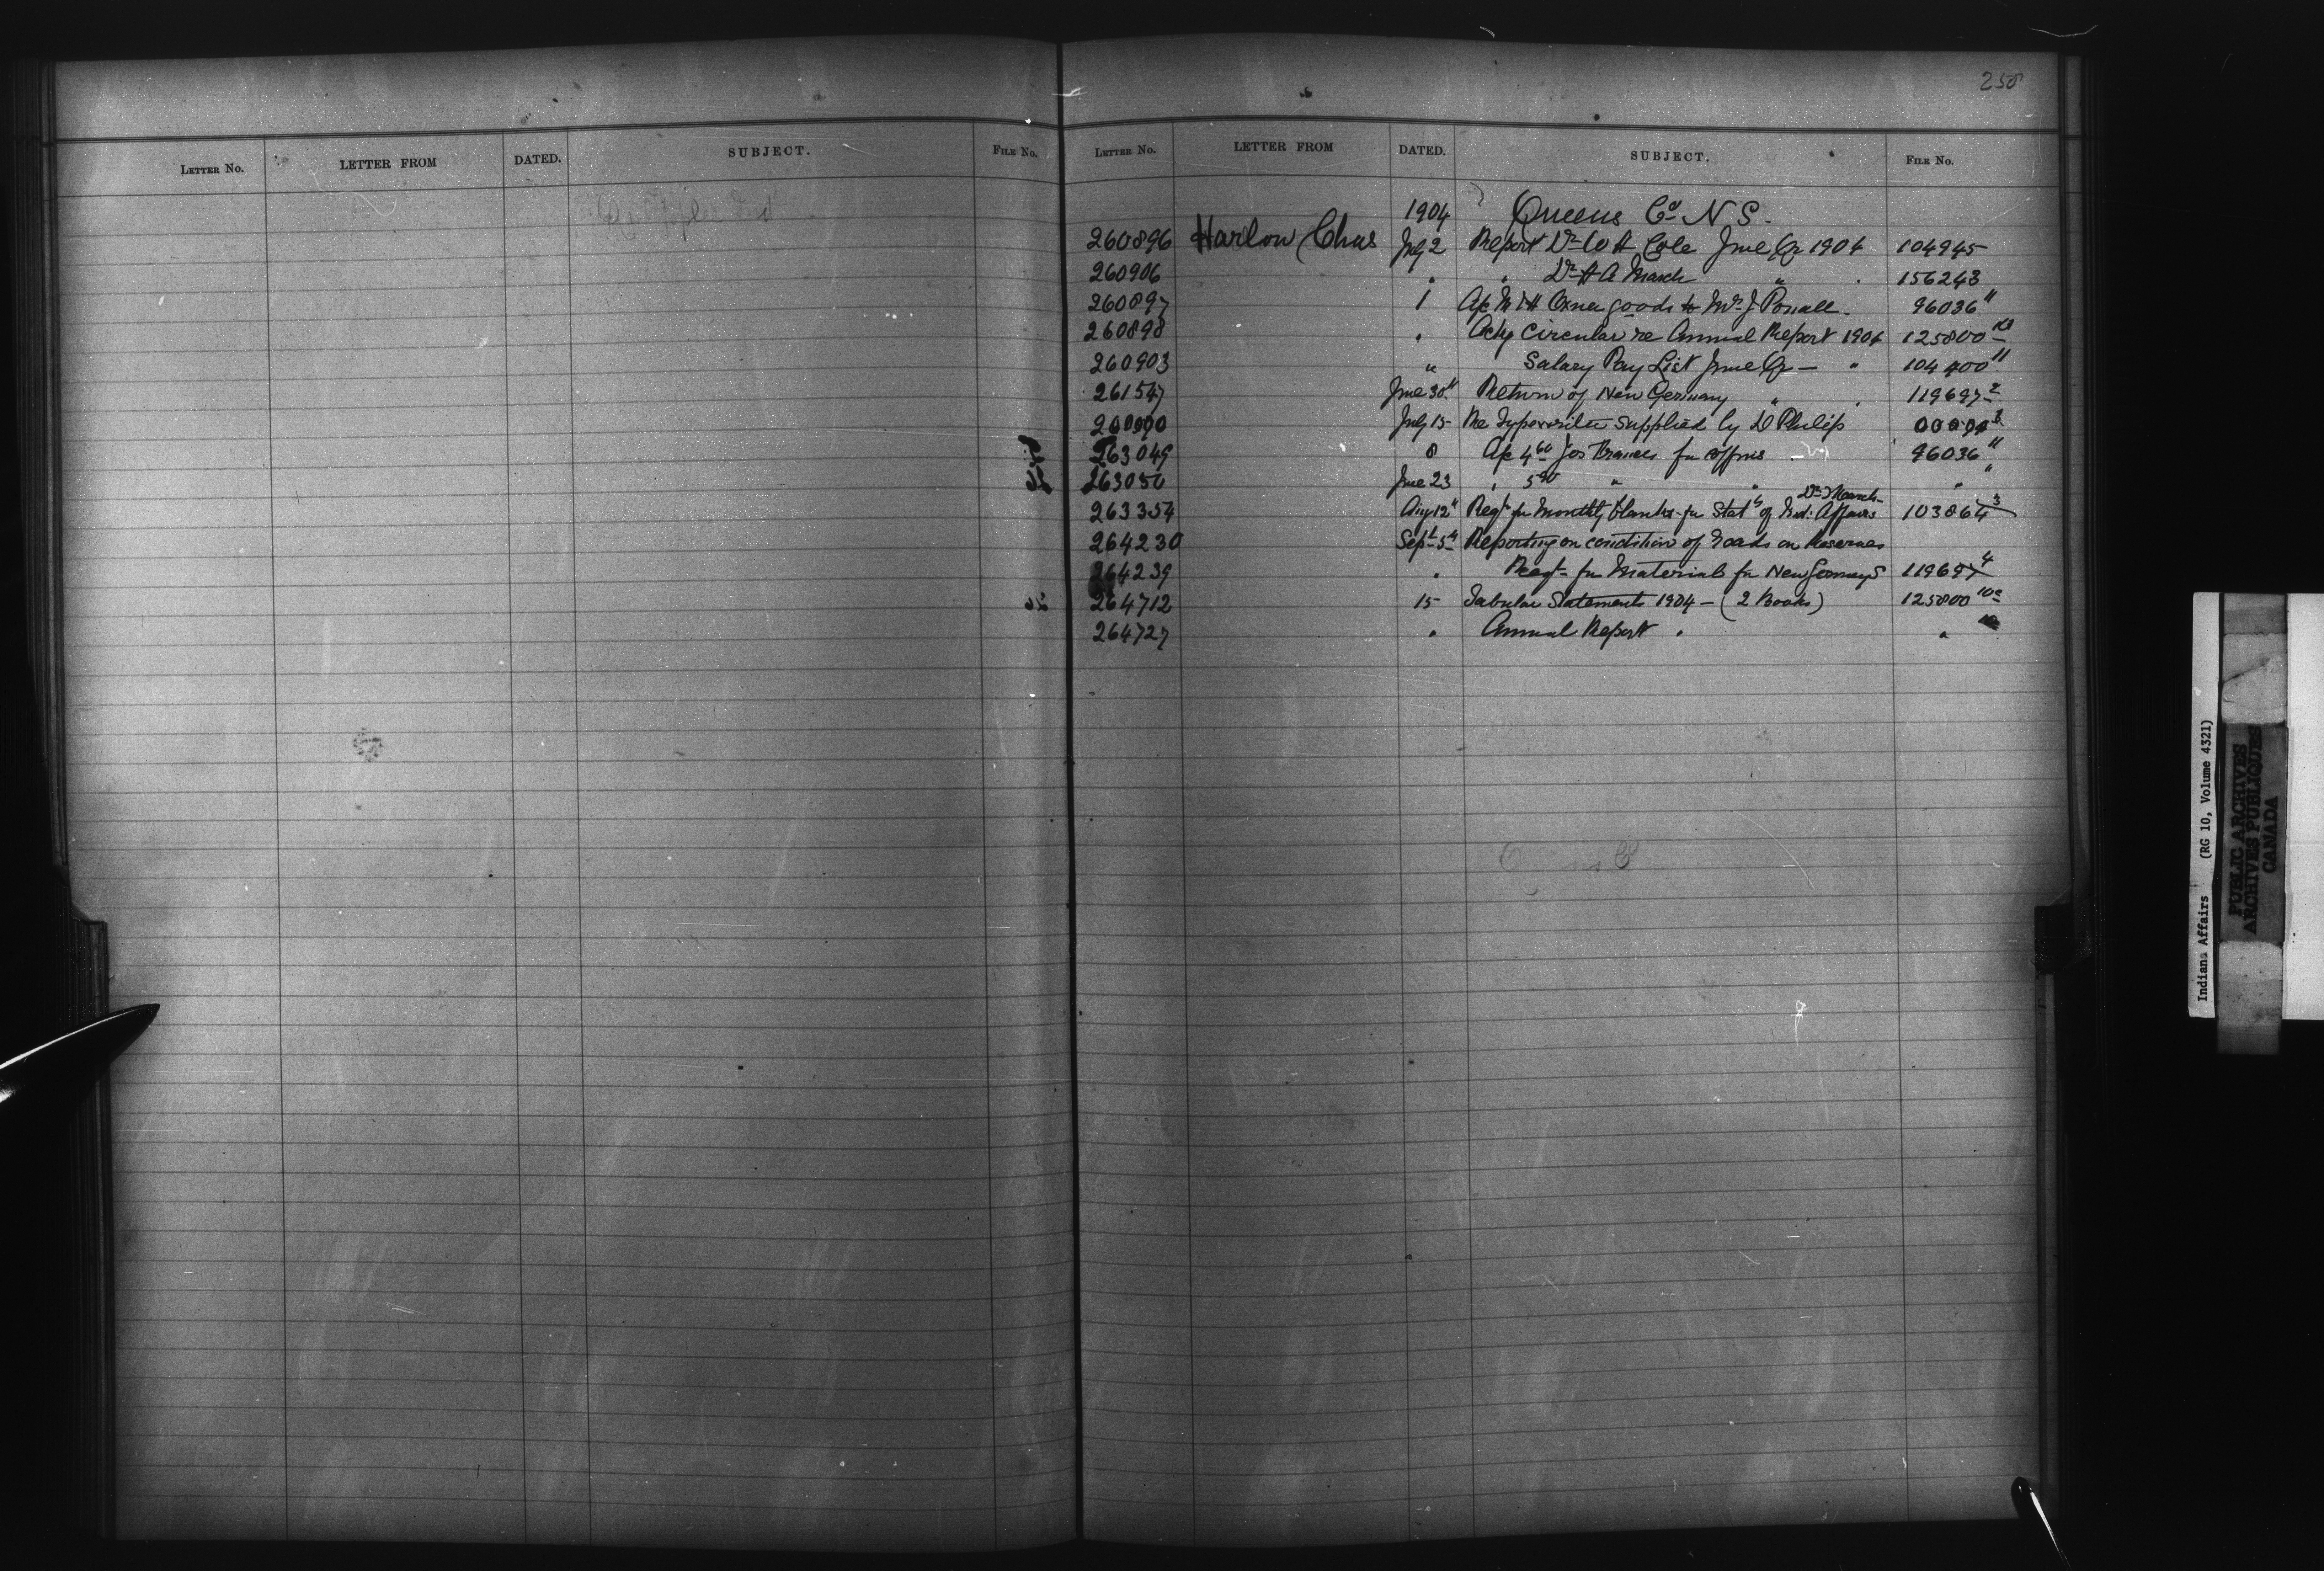 258
LETTER No. LETTER FROM DATED. SUBJECT. FILE No.
LETTER No. LETTER FROM DATED. SUBJECT. FILE No.
1904 Queens Co N S.
260896 Harlow Chas July 2 Report Dr W A Cole June Qr 1904 104945
260906 " " Dr H A March " " 156243
260897 1 A/c goods to Mrs J 96036 11
260898 " Ackg Circular re Annual Report 1904 125800
260903 " Salary Pay List June Qr — " 104400 11
261547 June 30" Return of New Germany " " 119697 2
July 15 Re Typewriter supplied by D Philip
263049 8 A/c 4 60 Jos Francis for coffins 96036 11
263050 June 23 " 5 " " " "
Dr March
263354 Aug 12" Reqt for Monthly blanks for Stat of Ind: Affairs 103864 3
264230 Sept 5th Reporting on condition of roads on Reserves
264239 " Reqt for Material for New Germany S 119697 4
264712 15 Tabular Statements 1904 — (2 Books) 125800 10a
264727 " Annual Report " "
Indians Affairs (RG 10, Volume 4321)
PUBLIC ARCHIVES
ARCHIVES PUBLIQUES
CANADA